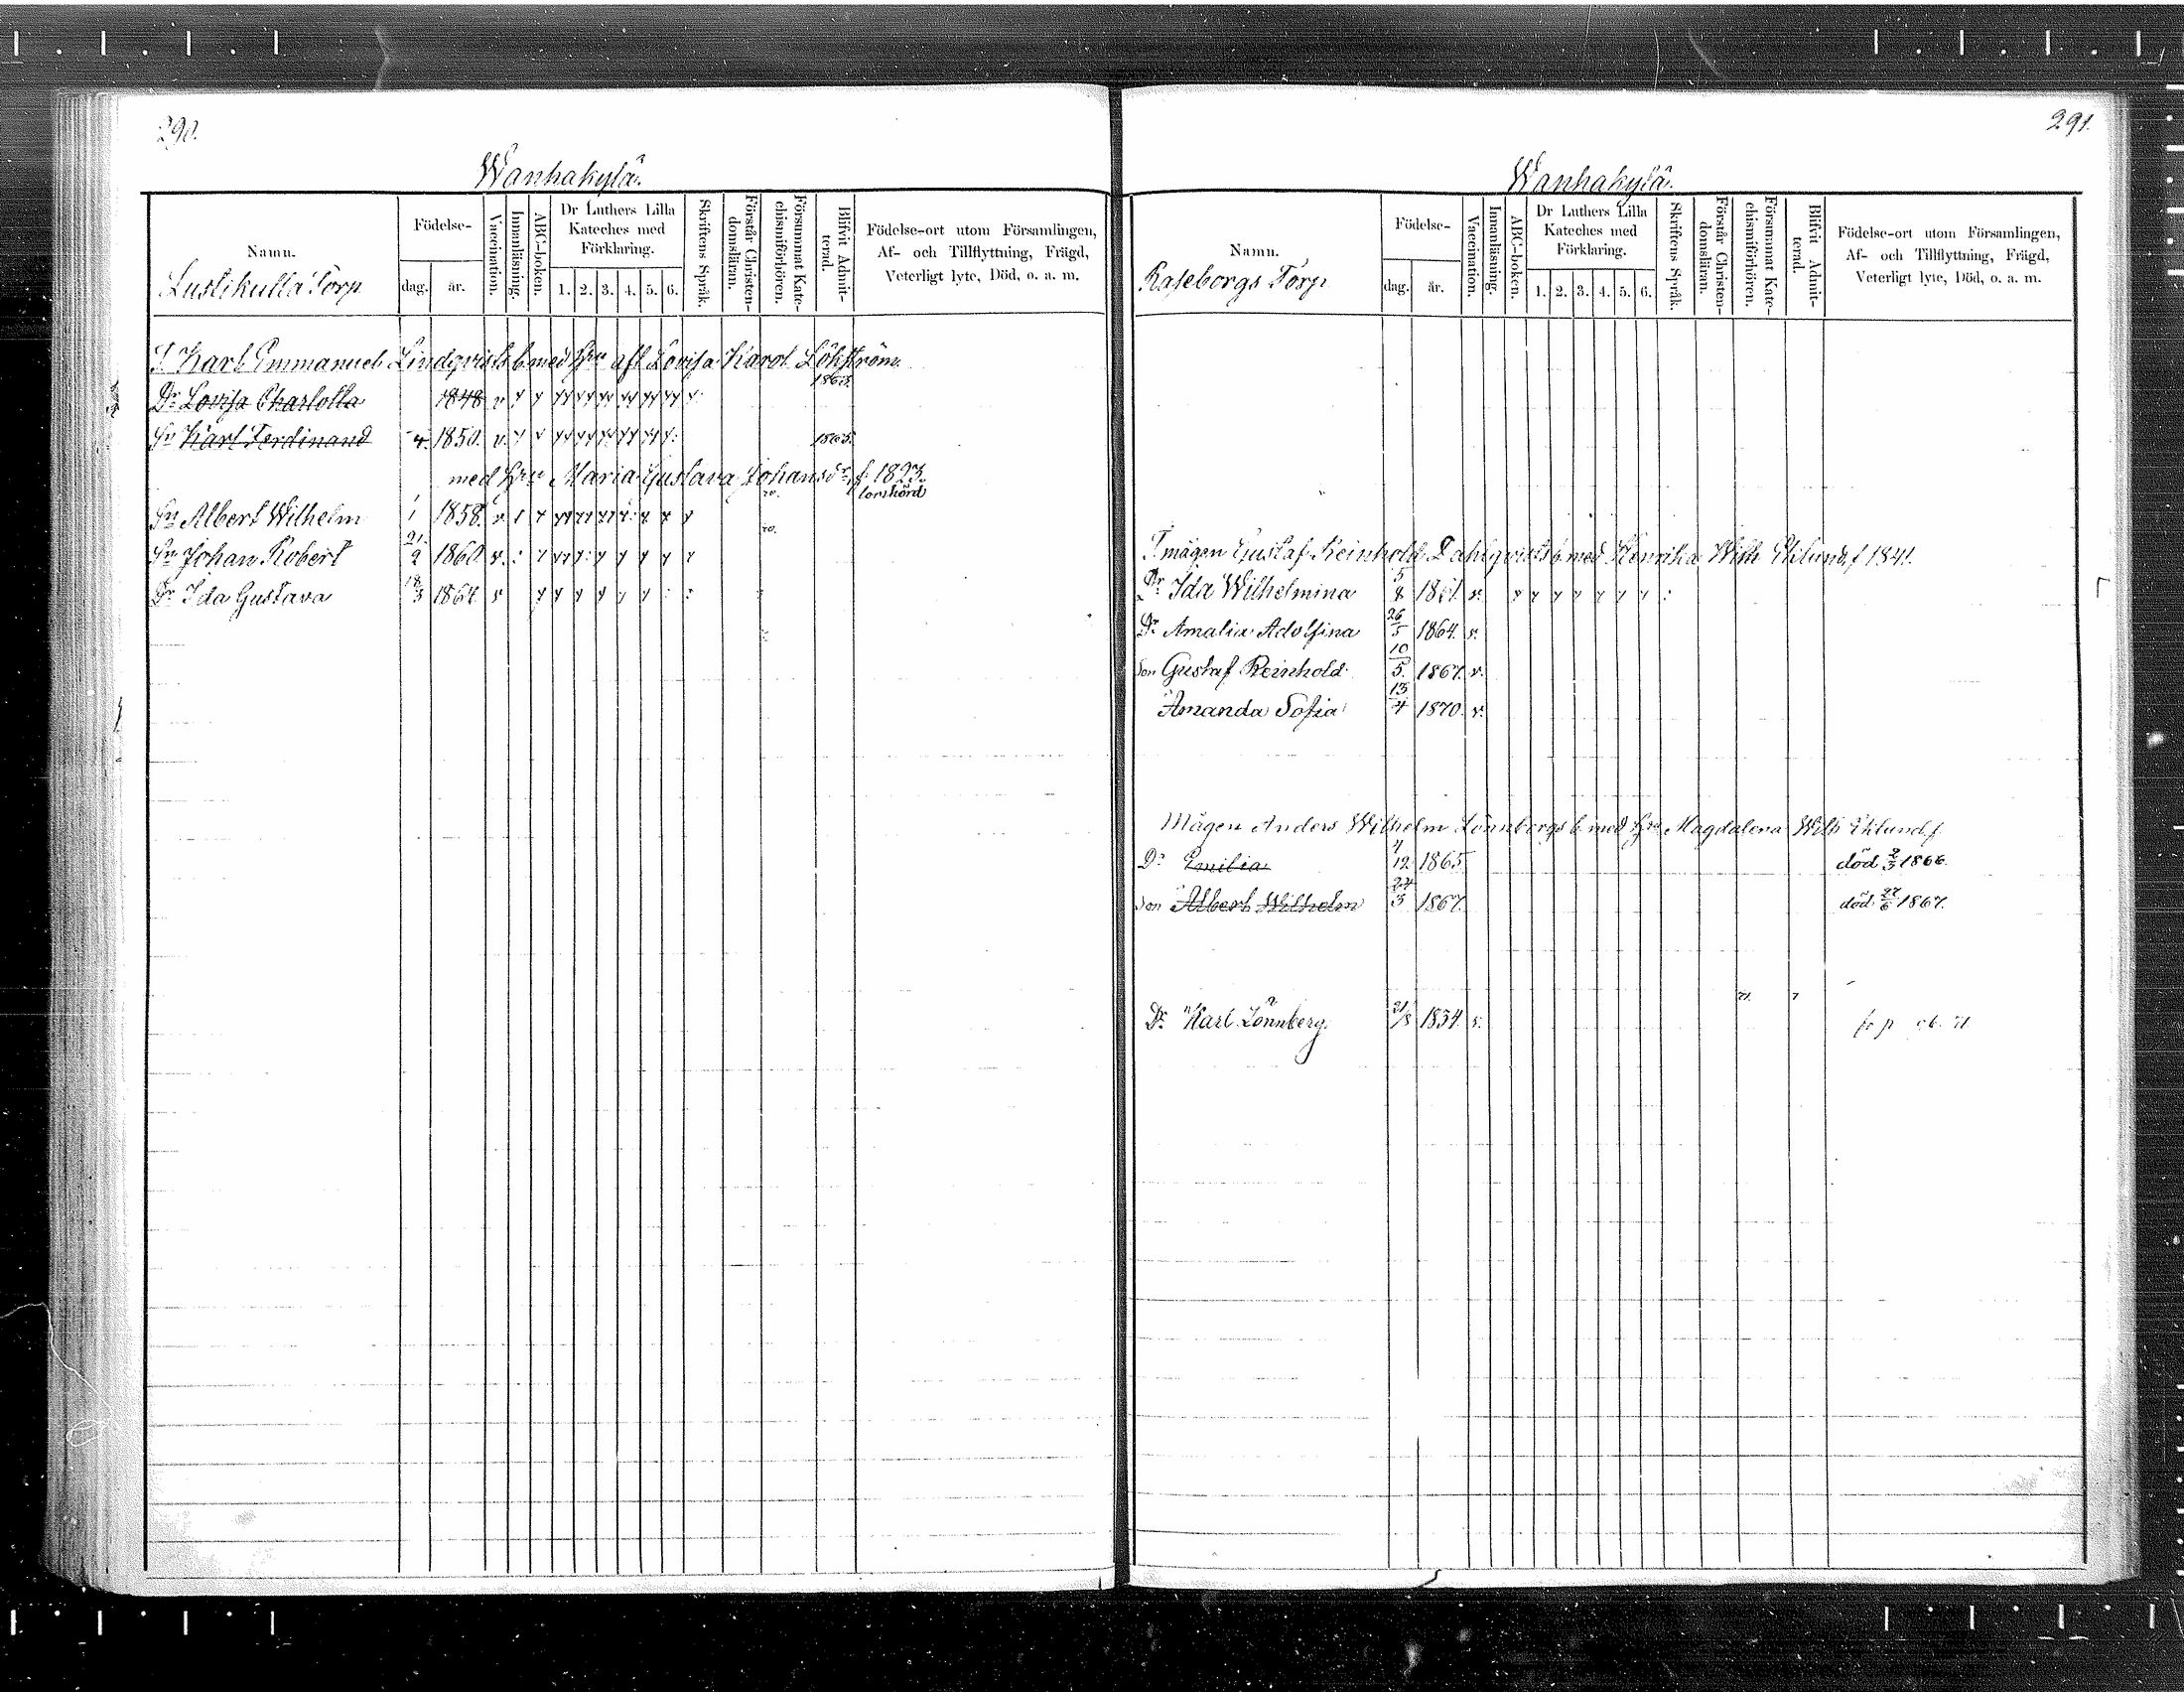 290.
Wanhakylä.
Namn.
Lustikulla Torp
Födelse-
dag.
år.
Vaccination.
Innanläsning.
ABC-boken.
Dr Luthers Lilla Kateches med Förklaring.
1. 2. 3. 4. 5. 6.
Skriftens Språk.
Förstår Christendomsläran.
Försummat Katechismiförhören.
Blifvit Admitterad.
Födelse-ort utom Församlingen, Af- och Tillflyttning, Frägd, Veterligt lyte, Död, o. a. m.
T. Karl Emmanuel Lindqvists b. med Hru afl Lovisa Karol. Löhström.
Dr Lovisa Charlotta 1848 v 1863.
Sn Karl Ferdinand 4 1850. v. 1865.
med Hru Maria Gustava Johansdr, f. 1823.
Sn Albert Wilhelm 1 1 1858. v
Sn Johan Robert 21. 2 1860. v. 70.
Dr Ida Gustava 18 3 1864 v
291.
Wanhakylä.
Namn.
Raseborgs Torp
Födelse-
dag.
år.
Vaccination.
Innanläsning.
ABC-boken.
Dr Luthers Lilla Kateches med Förklaring.
1. 2. 3. 4. 5. 6.
Skriftens Språk.
Förstår Christendomsläran.
Försummat Katechismiförhören.
Blifvit Admitterad.
Födelse-ort utom Församlingen, Af- och Tillflyttning, Frägd, Veterligt lyte, Död, o. a. m.
T. mågen Gustaf Reinhold Dahlqvists b. med Henrika Wilh Eklund, f 1841.
Dr Ida Wilhelmina 5 8 1861. v.
Dr Amalia Adolfina 26 5 1864. v.
Son Gustaf Reinhold 10 5. 1867. v.
Amanda Sofia 13 4 1870. v.
Mågen Anders Wilhelm Lönnbergs b. med Hru Magdalena Wilh Eklund f
Dr Emilia 4 12 1865. död 2/3 1866.
Son Albert Wilhelm 24 3 1867. död 27/6 1867.
Dr Karl Lönnberg 21/8 1834. v. 71.